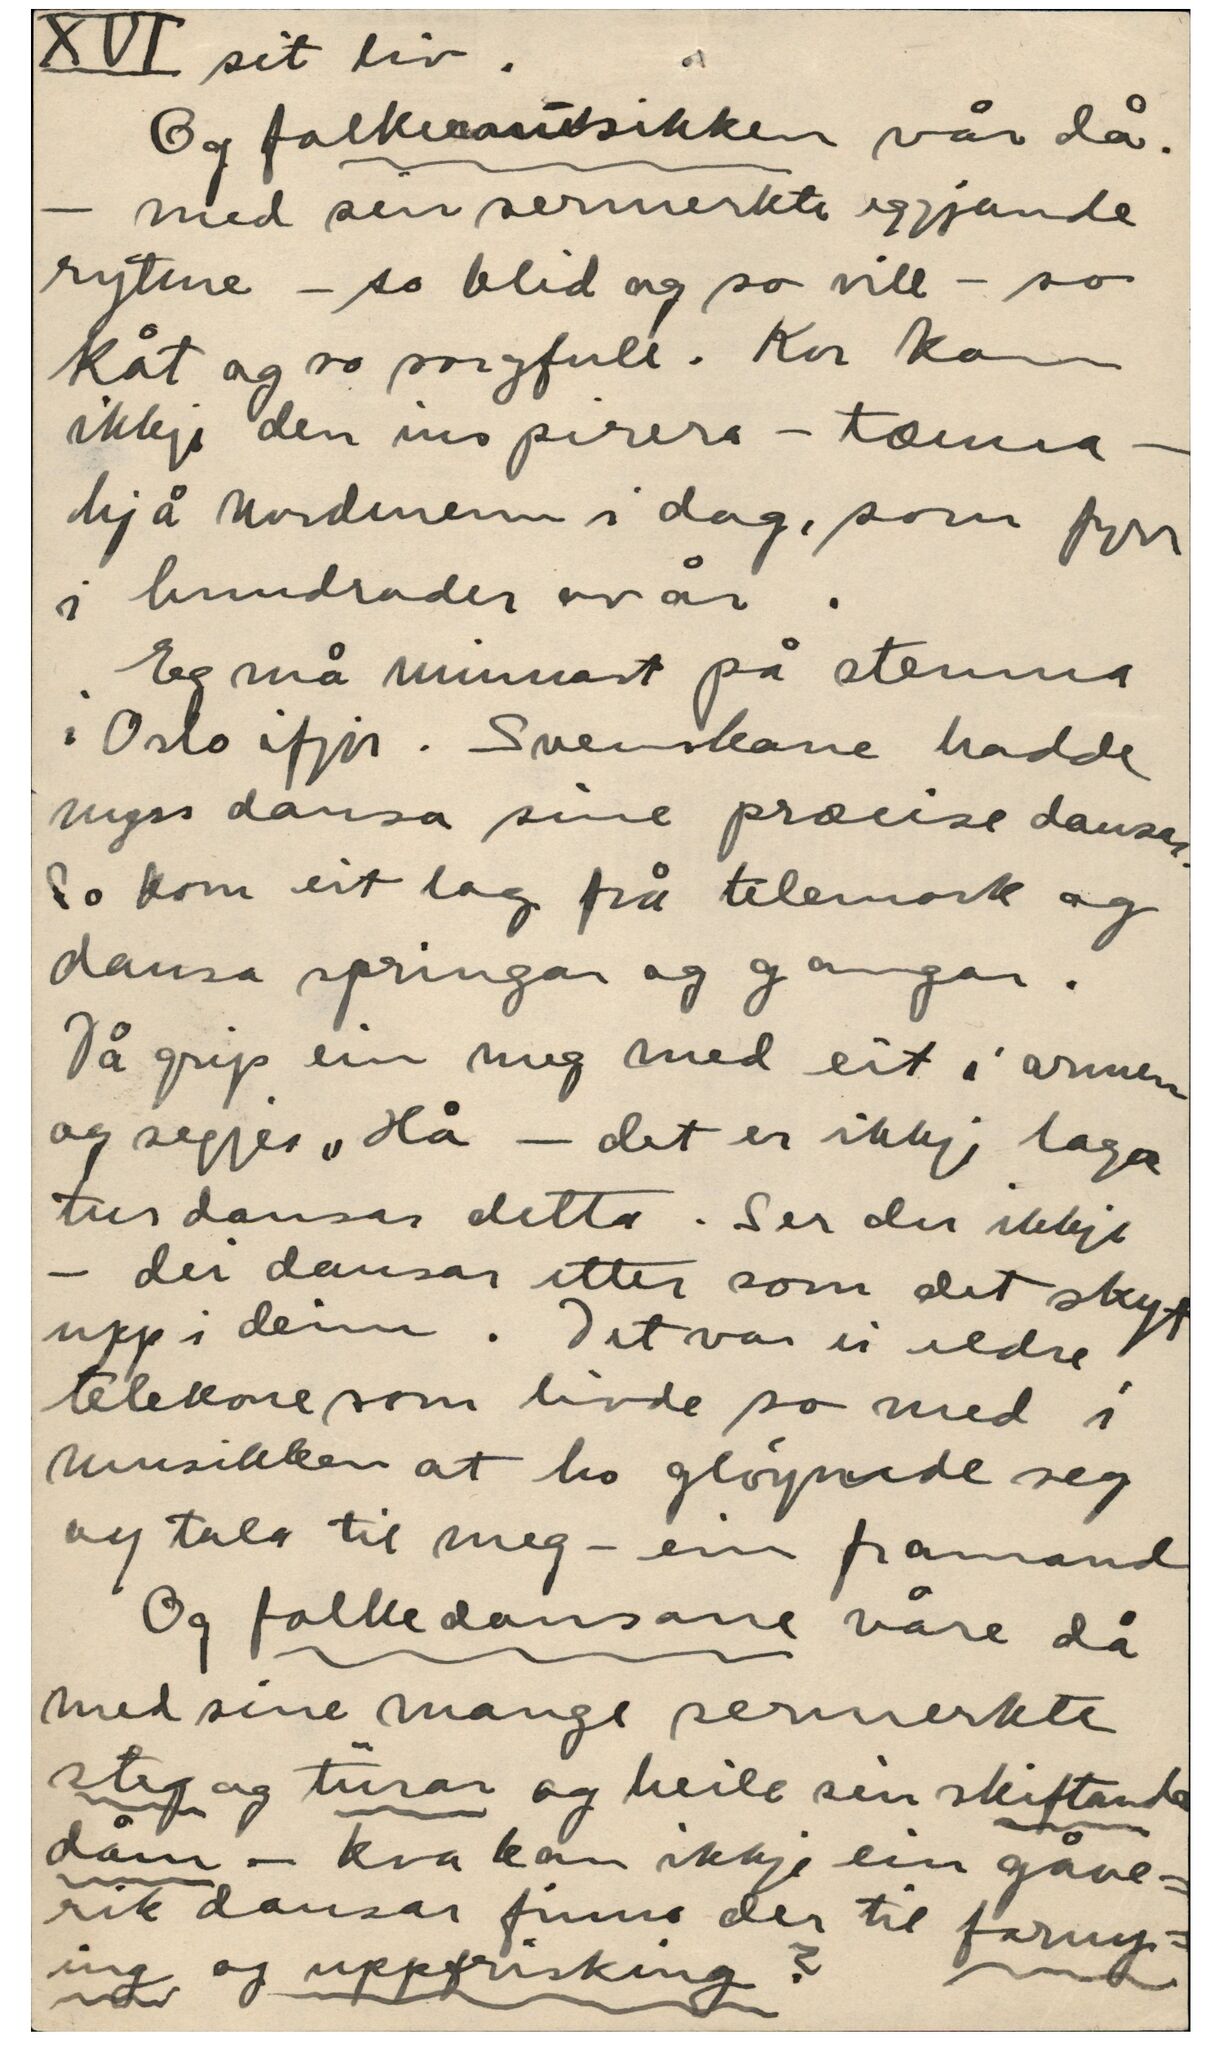 XVI sit liv.
Og folkemusikken vår då.
– med sin sermerkte eggjande
rytme – so blid og so vill – so
kåt og so sorgfull. Kor kann
ikkje den inspirera – tæma –
hjå Nordmenn i dag, som fyrr
i hundrader av år.
Eg må minnast på stemna
i Oslo ifjor. Svenskane hadde
nyss dansa sine præcise dansar.
So kom eit lag frå telemark og
dansa springar og gangar.
Då greip ein meg med eit i armen
og segjer „Hå – det er ikkje laga
turdansar detta. Ser du ikkje
– dei dansar etter som det skyt
upp i deim. Det var ei eldre
telekone som livde so med i
musikken at ho gløymde seg
og tala til meg – ein framand
Og folkedansane våre då
med sine mange sermerkte
steg og turar og heile sin skiftande
dåm – kva kan ikkje ein gåve=
rik dansar finna der til forny=
ing og uppfrisking?